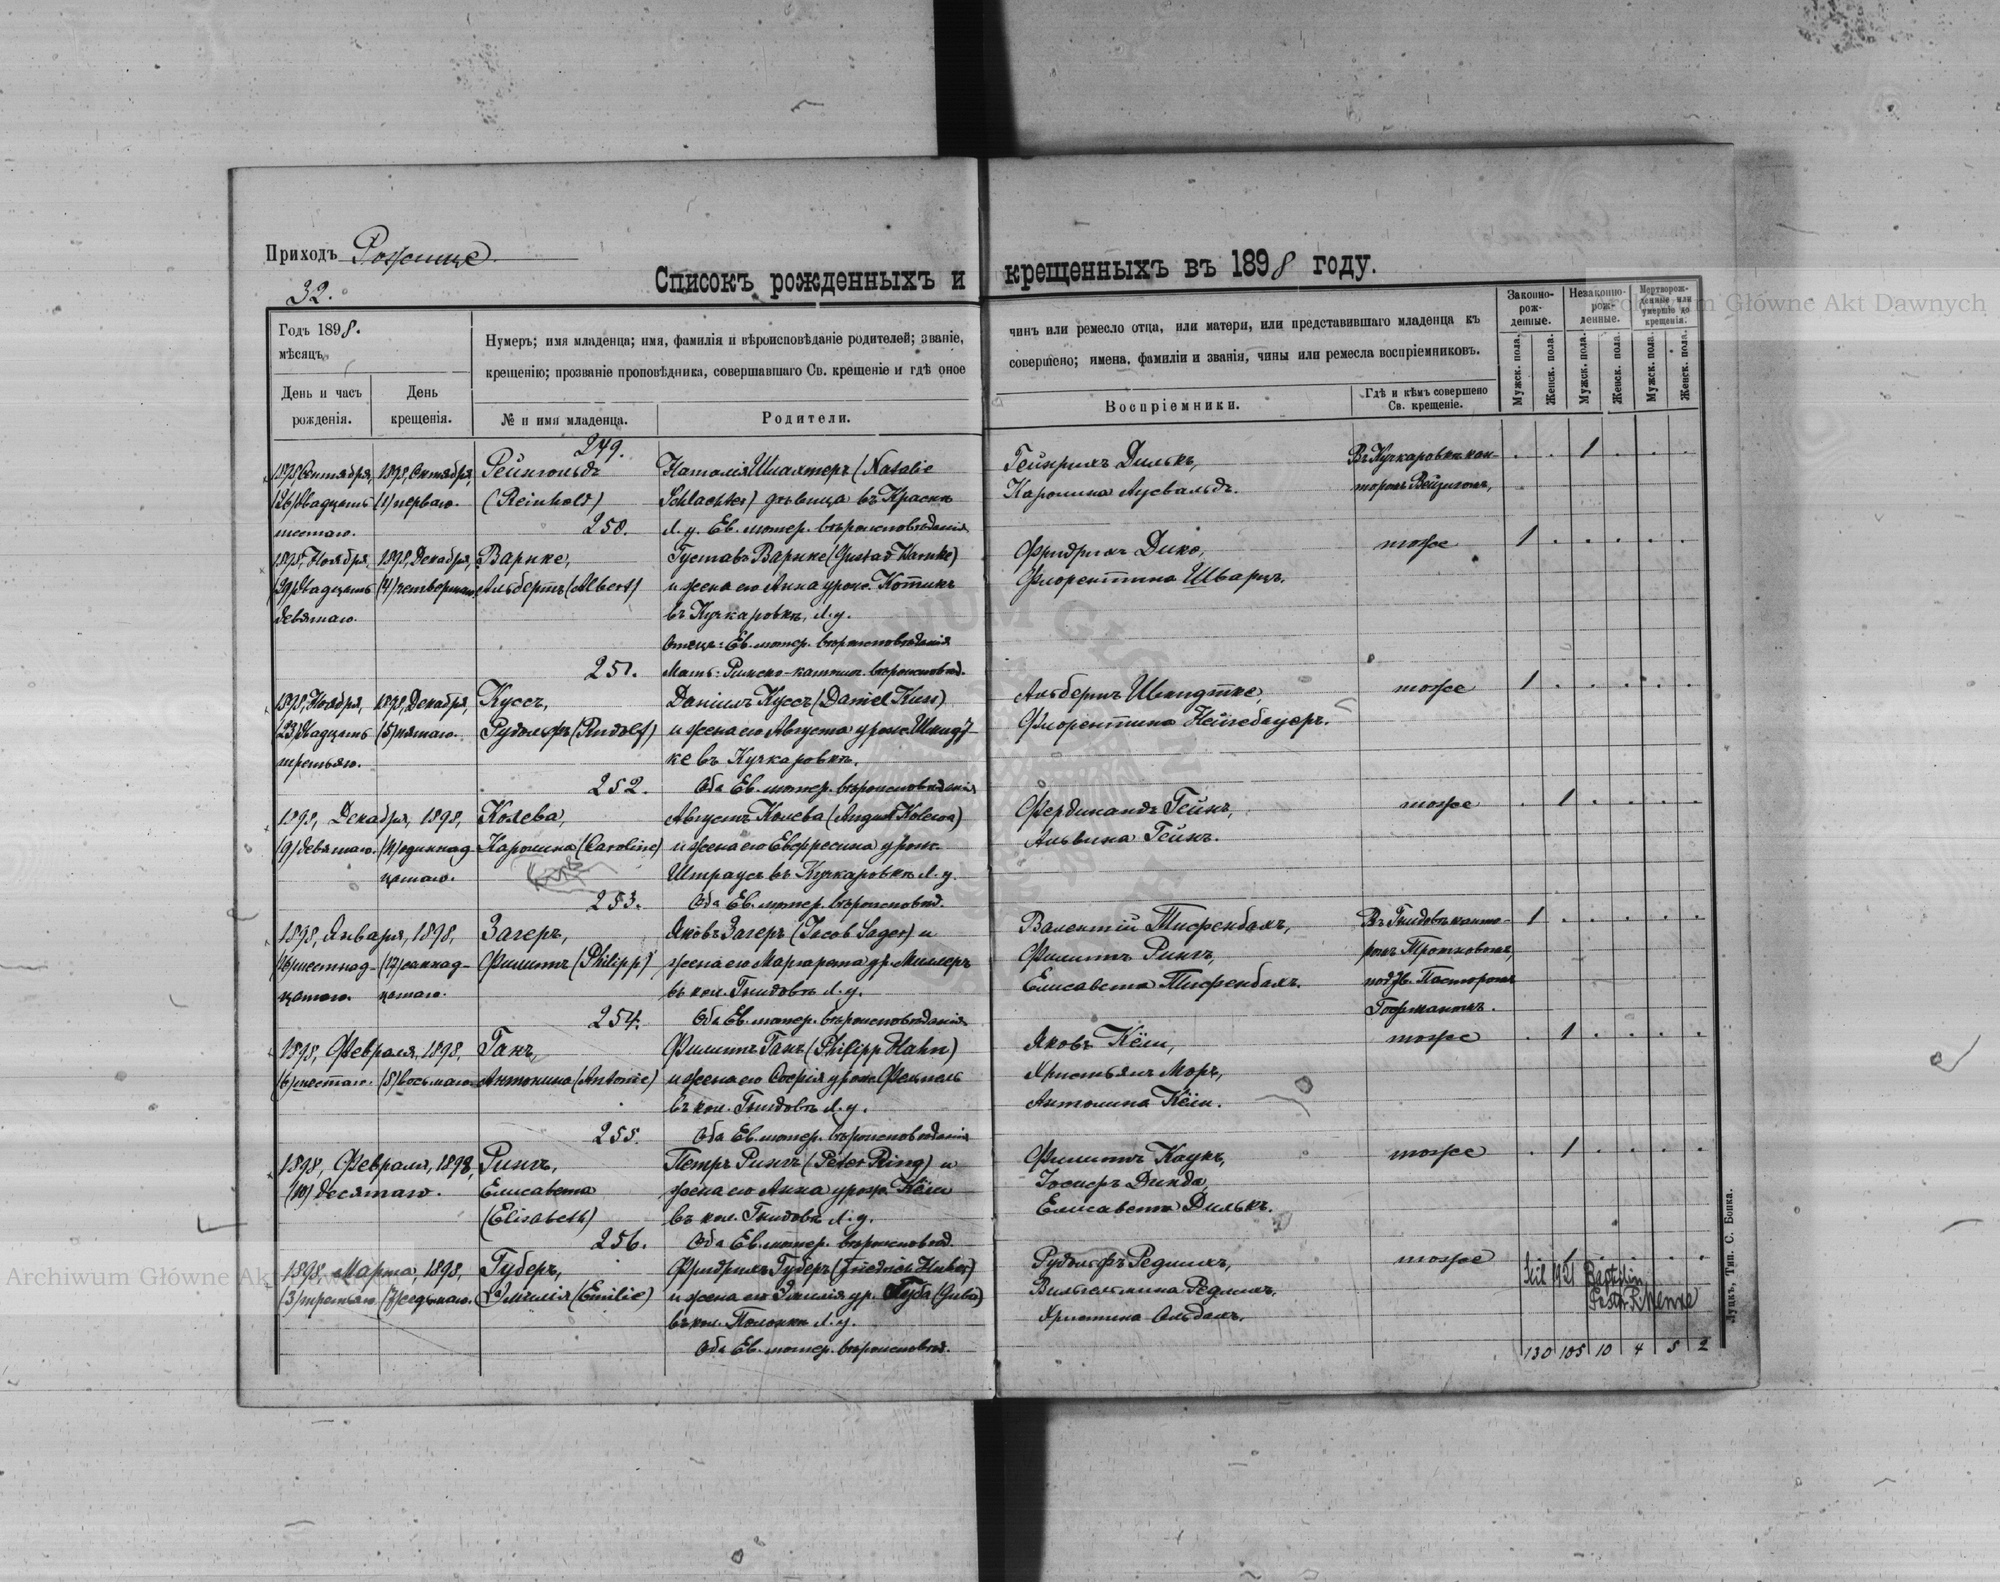 Приходъ Рожище
32.
Списокъ рожденныхъ и крещенныхъ въ 1898 году.
Годъ 1898.
мѣсяцъ
День и часъ рожденія.
День крещенія.
Нумеръ; имя младенца; имя, фамилія и вѣроисповѣданіе родителей; званіе,
крещенію; прозваніе проповѣдника, совершавшаго Св. крещеніе и гдѣ оное
№ и имя младенца.
Родители.
чинъ или ремесло отца, или матери, или представившаго младенца къ
совершено; имена, фамиліи и званія, чины или ремесла воспріемниковъ.
Воспріемники.
Гдѣ и кѣмъ совершено
Св. крещеніе.
Законно-рож-денные.
Незаконно-рож-денные.
Мертворож-денные или умершіе до крещенія.
Мужск. пола.
Женск. пола.
Мужск. пола.
Женск. пола.
Мужск. пола.
Женск. пола.
249.
1898, Сентября, 1898, Октября, Рейнгольдъ Наталія Шлахтеръ (Natalie Гейнрихъ Дилькъ, Въ Кучкаровкѣ кан- 1
(26) двадцать (1) перваго. (Reinhold) Schlachter) дѣвица въ Красн Каролина Аусвальдъ. торомъ
шестаго. 250. Л. у. Ев. лютер. вѣроисповѣданія
1898, Ноября, 1898, Декабря, Варнке, Густавъ Варнке (Gustav Warnke) Фридрихъ Дико, тоже 1
(29) двадцать (4) четвертаго. Альбертъ (Albert) и жена его Анна урож. Котикъ Флорентина Шварцъ.
девятаго. въ Кучкаровкѣ, Л. у.
Отецъ: Ев. лютер. вѣроисповѣданія
251. Мать: Римско-католич. вѣроисповѣд.
1898, Ноября, 1898, Декабря, Куссъ, Даніилъ Куссъ (Daniel Kuss) Альбертъ Шмидтке, тоже 1
(23) двадцать (5) пятаго. Рудольфъ (Rudolf) и жена его Августа урож. Шмидт- Флорентина Нейгебауеръ.
третьяго. ке въ Кучкаровкѣ.
252. Оба Ев. лютер. вѣроисповѣданія
1898, Декабря, 1898, Колева, Августъ Колева (August Kolewa) Фердинандъ Гейнъ, тоже 1
(9) девятаго. (11) одиннад- Каролина (Caroline) и жена его Евфросина урож. Альвина Гейнъ.
цатаго. Штраусъ въ Кучкаровкѣ Л. у.
253. Оба Ев. лютер. вѣроисповѣд.
1898, Января, 1898, Загеръ, Яковъ Загеръ (Jacob Sager) и Валентій Тифенбахъ, Въ Гнидовѣ канто- 1
(16) шестнад- (17) семнад- Филиппъ (Philipp) жена его Маргарета ур. Миллеръ Филиппъ Рингъ,
цатаго. цатаго. въ кол. Гнидовѣ Л. у. Елисавета Тифенбахъ. Пасторомъ
254. Оба Ев. лютер. вѣроисповѣданія
1898, Февраля, 1898, Ганъ, Филиппъ Ганъ (Philipp Hahn) Яковъ Кёли, тоже 1
(6) шестаго. (8) восьмаго. Антонина (Antonie) и жена его Софія урож. Христьянъ Моръ,
въ кол. Гнидовѣ Л. у. Антонина Кёли.
255. Оба Ев. лютер. вѣроисповѣданія
1898, Февраля, 1898, Рингъ, Петръ Рингъ (Peter Ring) и Филиппъ Каукъ, тоже 1
(10) десятаго. Елисавета жена его Анна урож. Кёли Іосифъ Динда,
(Elisabeth) въ кол. Гнидовѣ Л. у. Елисавета Дилькъ.
256. Оба Ев. лютер. вѣроисповѣд.
1898, Марта, 1898, Губеръ, Фридрихъ Губеръ (Friedrich Huber) Рудольфъ Редлихъ, тоже 1
(3) третьяго. (7) седьмаго. Эмилія (Emilie) и жена его Эмилія ур. Губа (Guba) Вильгельмина Редлихъ,
въ кол. Полонкѣ Л. у. Христина Ольдахъ.
Оба Ев. лютер. вѣроисповѣд.
130 105 10 4 5 2
Луцкъ, Тип. С. Бонка.
Archiwum Główne Akt Dawnych
Archiwum Główne Akt Dawnych